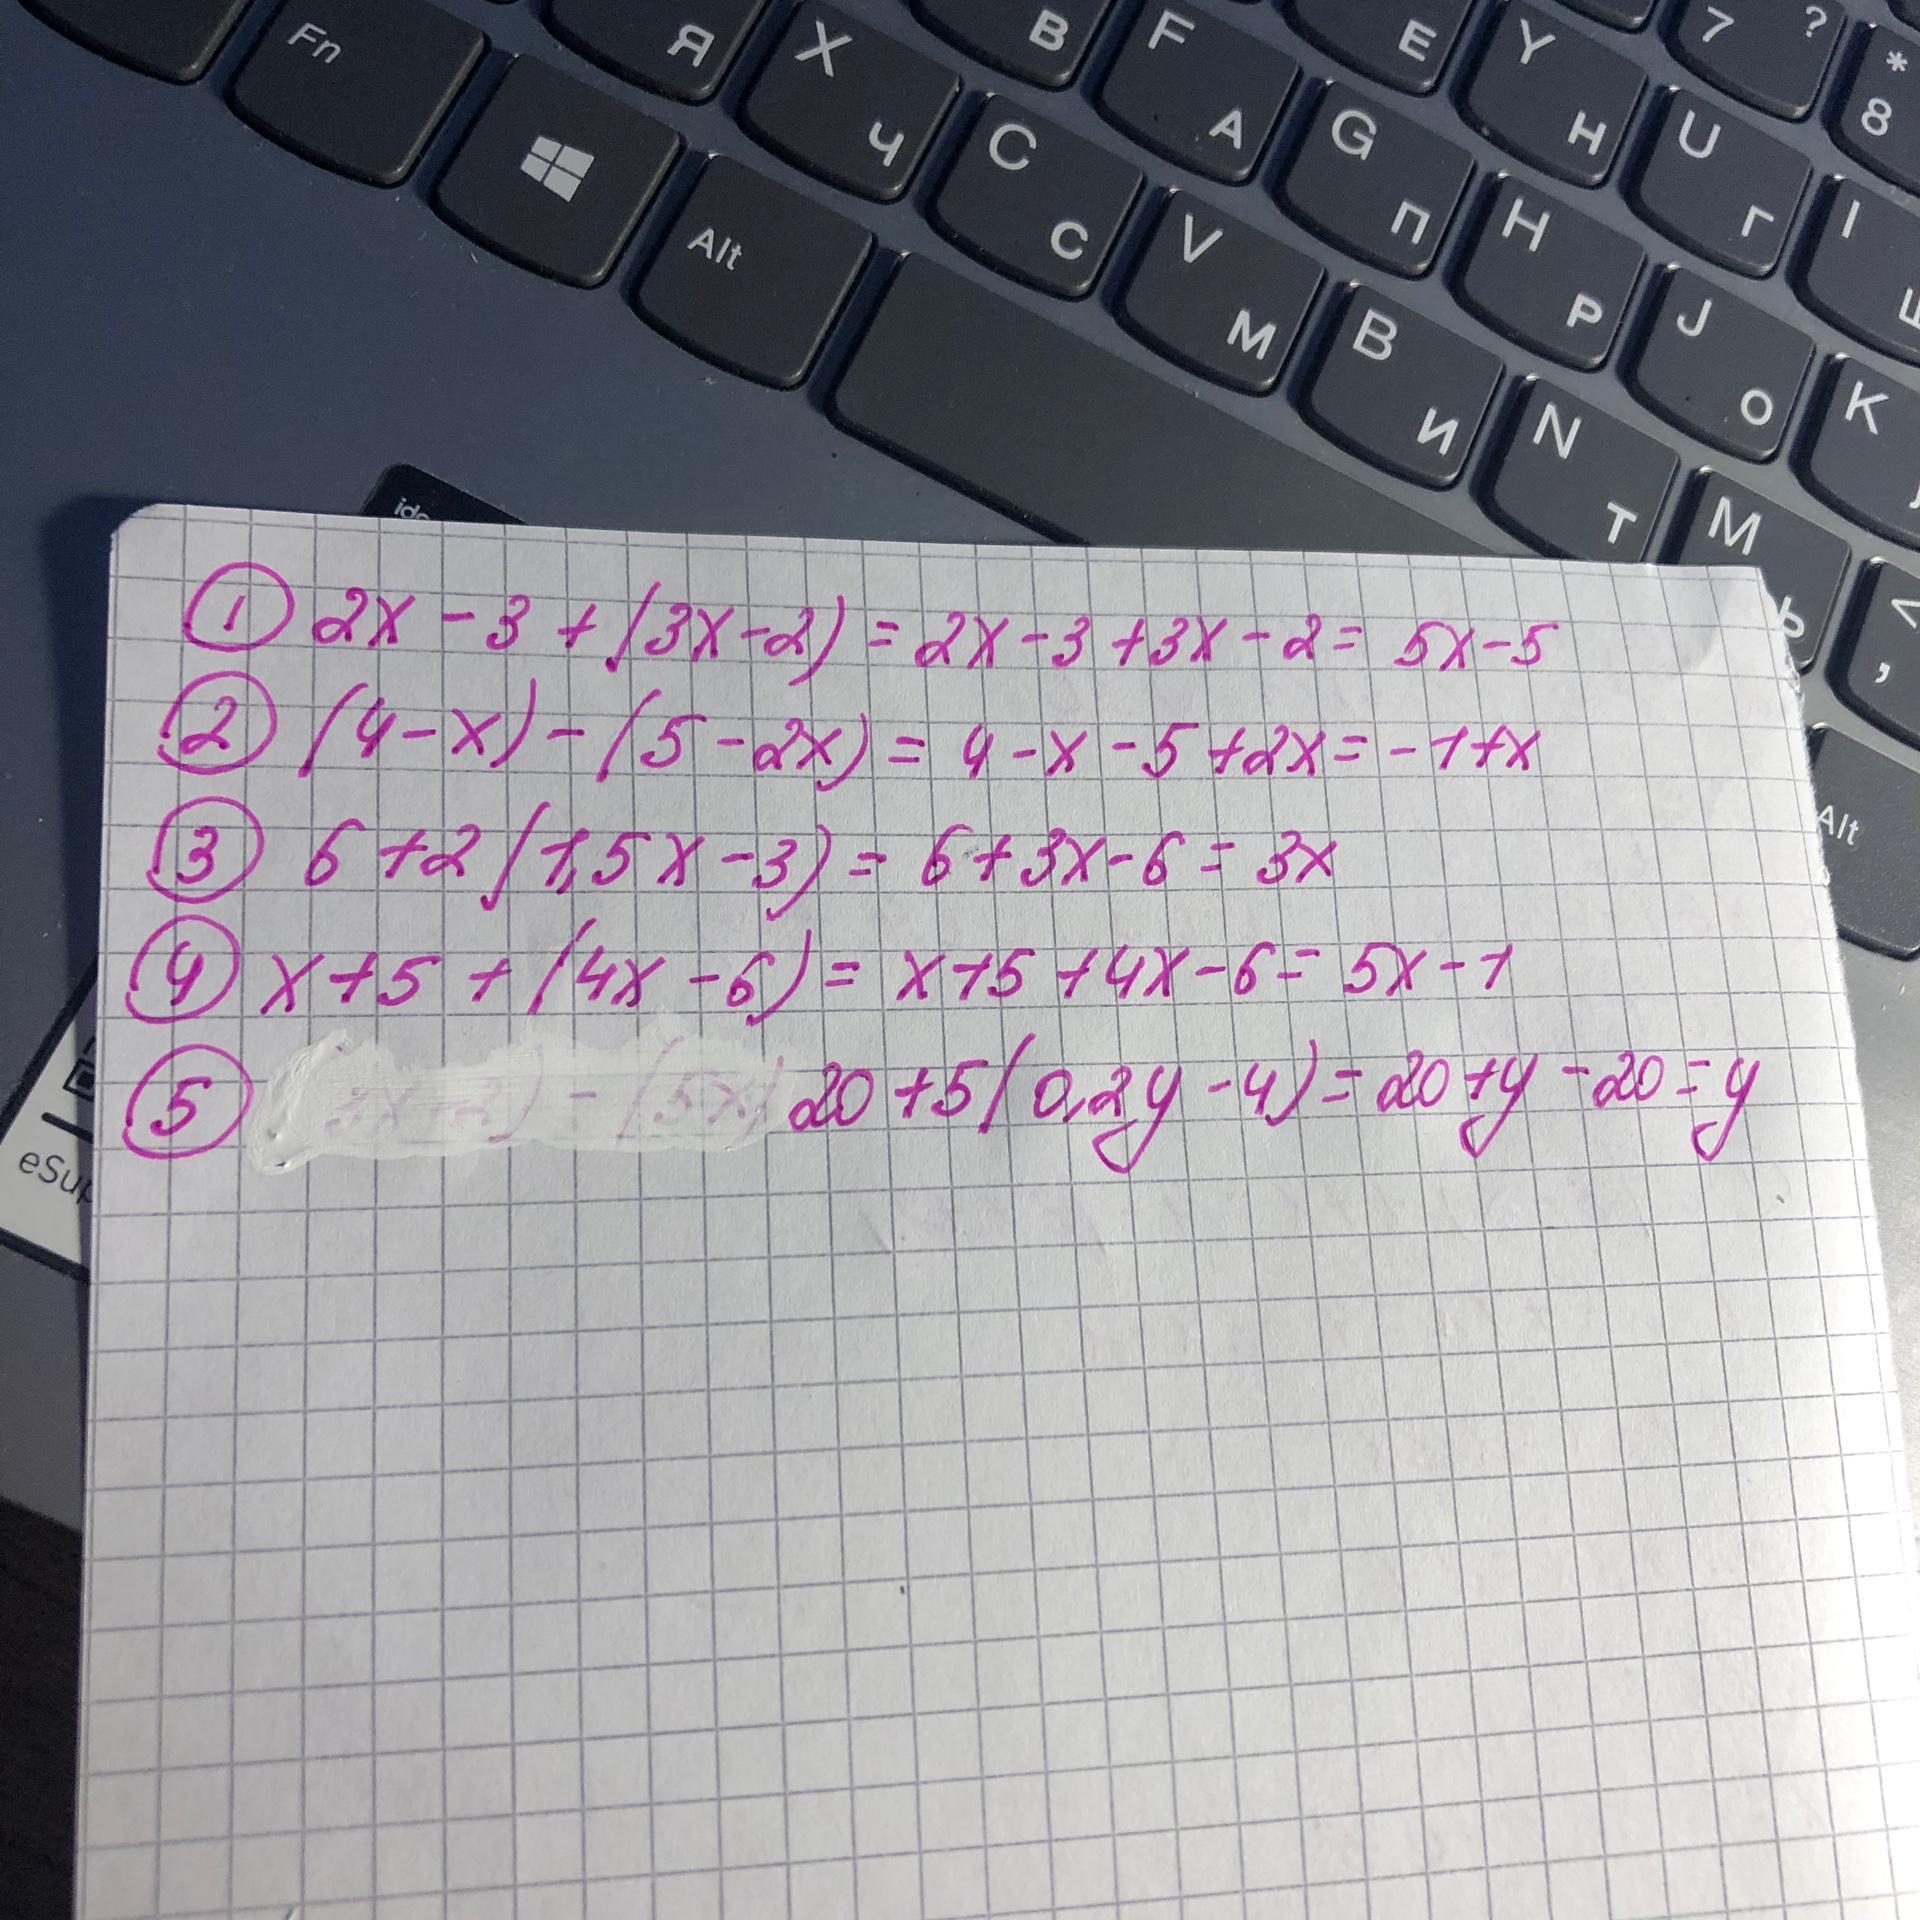 Fn Я X Ч В F А Е Y Н 7 ? * 8
Alt C С V М G П H Р U Г I
B И N Т J О M Ь K < ,
Alt
① 2x - 3 + (3x - 2) = 2x - 3 + 3x - 2 = 5x - 5
② (4 - x) - (5 - 2x) = 4 - x - 5 + 2x = -1 + x
③ 6 + 2 (1,5x - 3) = 6 + 3x - 6 = 3x
④ x + 5 + (4x - 6) = x + 5 + 4x - 6 = 5x - 1
⑤ 20 + 5 (0,2y - 4) = 20 + y - 20 = y